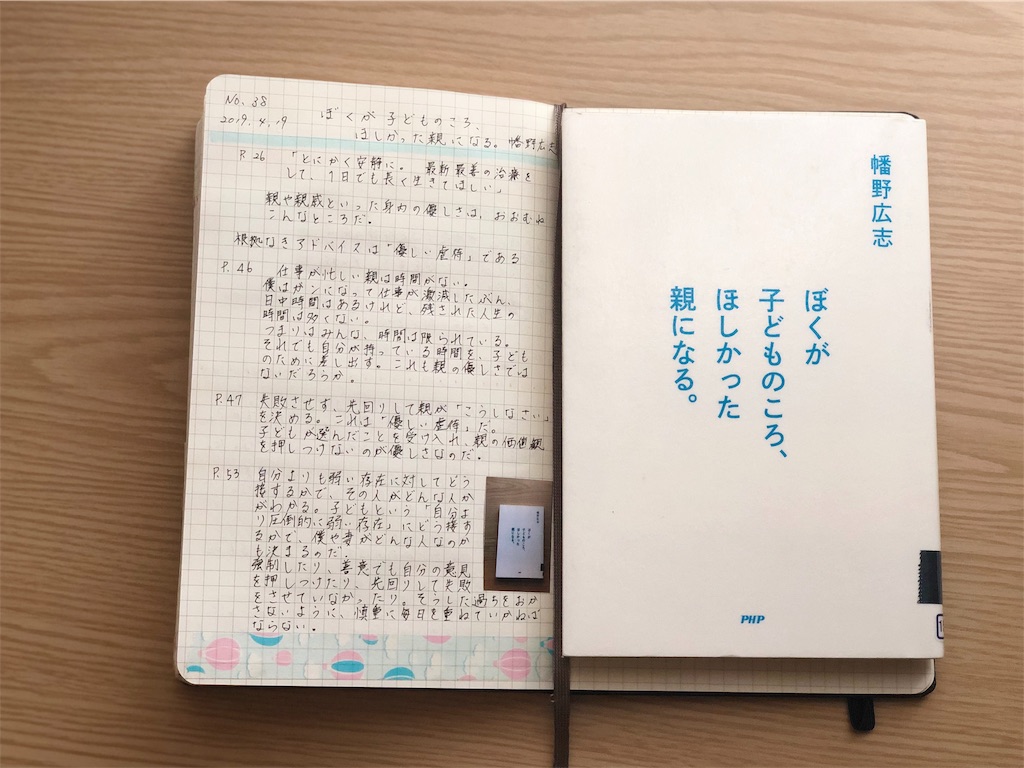 No. 38
2019. 4. 19
ぼくが子どものころ、
ほしかった親になる。 幡野広志
P. 26 「とにかく安静に。 最新最善の治療を
して、1日でも長く生きてほしい」
親や親戚といった身内の優しさは、おおむね
こんなところだ。
根拠なきアドバイスは「優しい虐待」である
P. 46 仕事が忙しい親は時間がない。
僕はガンになって仕事が激減したぶん、
日中時間はあるけれど、残された人生の
時間は多くない。
つまりはみんな、時間は限られている。
それでも自分が持っている時間を、子ども
のために差し出す。これも親の優しさでは
ないだろうか。
P. 47 失敗させず、先回りして親が「こうしなさい」
を決める。これは「優しい虐待」だ。
子どもが選んだことを受け入れ、親の価値観
を押しつけないのが優しさなのだ。
P. 53 自分よりも弱い存在に対してどう
接するかで、その人がどんな人か
がわかる。子どもという「自分よ
り圧倒的に弱い存在」にどう接す
るかで、僕や妻がどんな人なのか
も決まるのだ。
強制したり、善意でも自分の意見
を押しつけたり、先回りして失敗
をさせていなかったり。そうした過ちをおか
さないように、慎重に毎日を重ねていかねば
ならない。
幡野広志
ぼくが
子どものころ、
ほしかった
親になる。
PHP